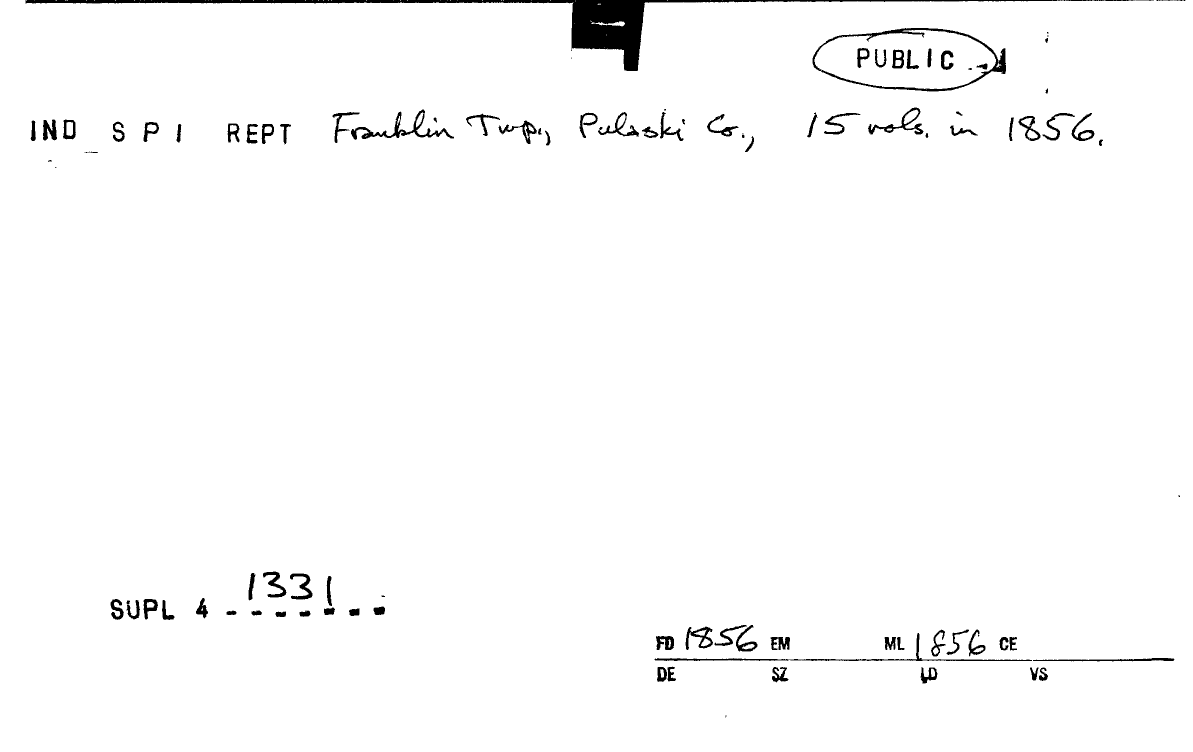 PUBLIC
IND S P I REPT Franklin Twp., Pulaski Co., 15 vols. in 1856.
SUPL 4 1331
FD 1856 EM ML 1856 CE
DE SZ LD VS